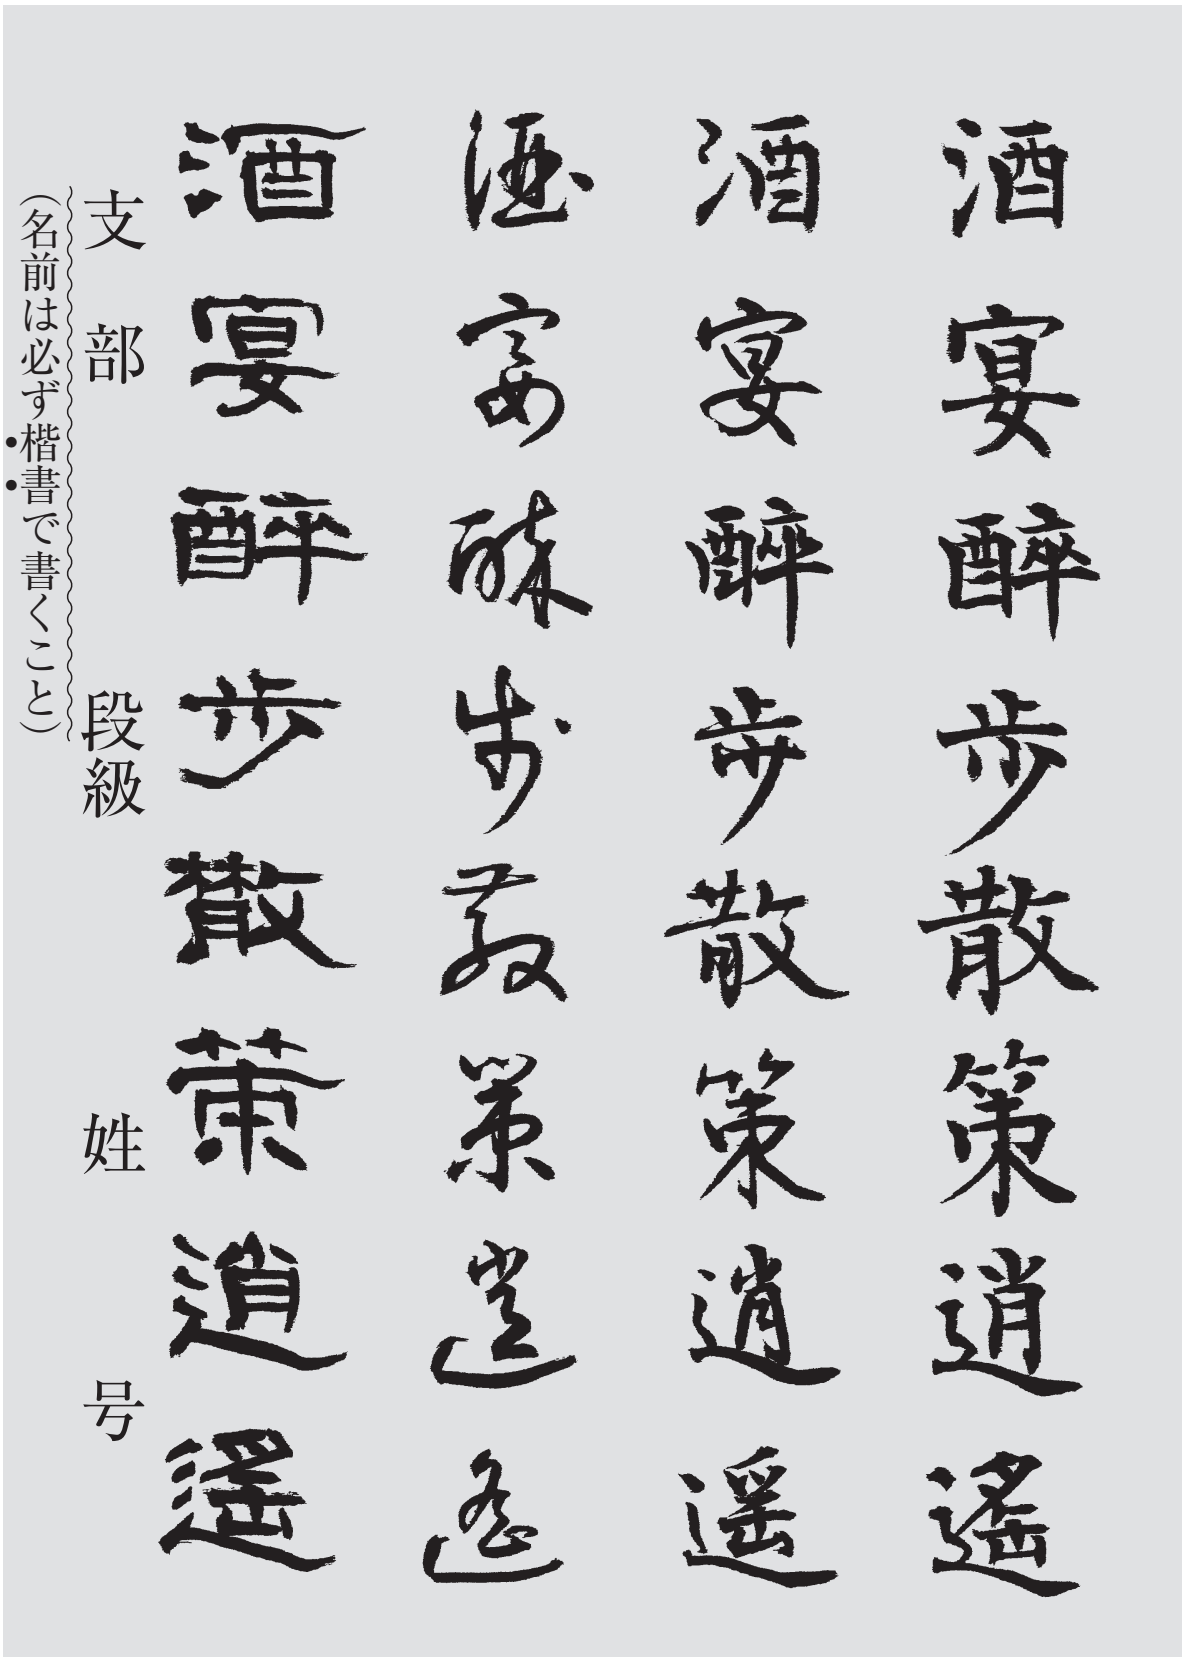 酒宴醉歩散策逍遙
酒宴醉歩散策逍遥
酒宴酔歩散策逍遙
酒宴醉歩散策逍遙
支部 段級 姓 号
（名前は必ず楷書で書くこと）